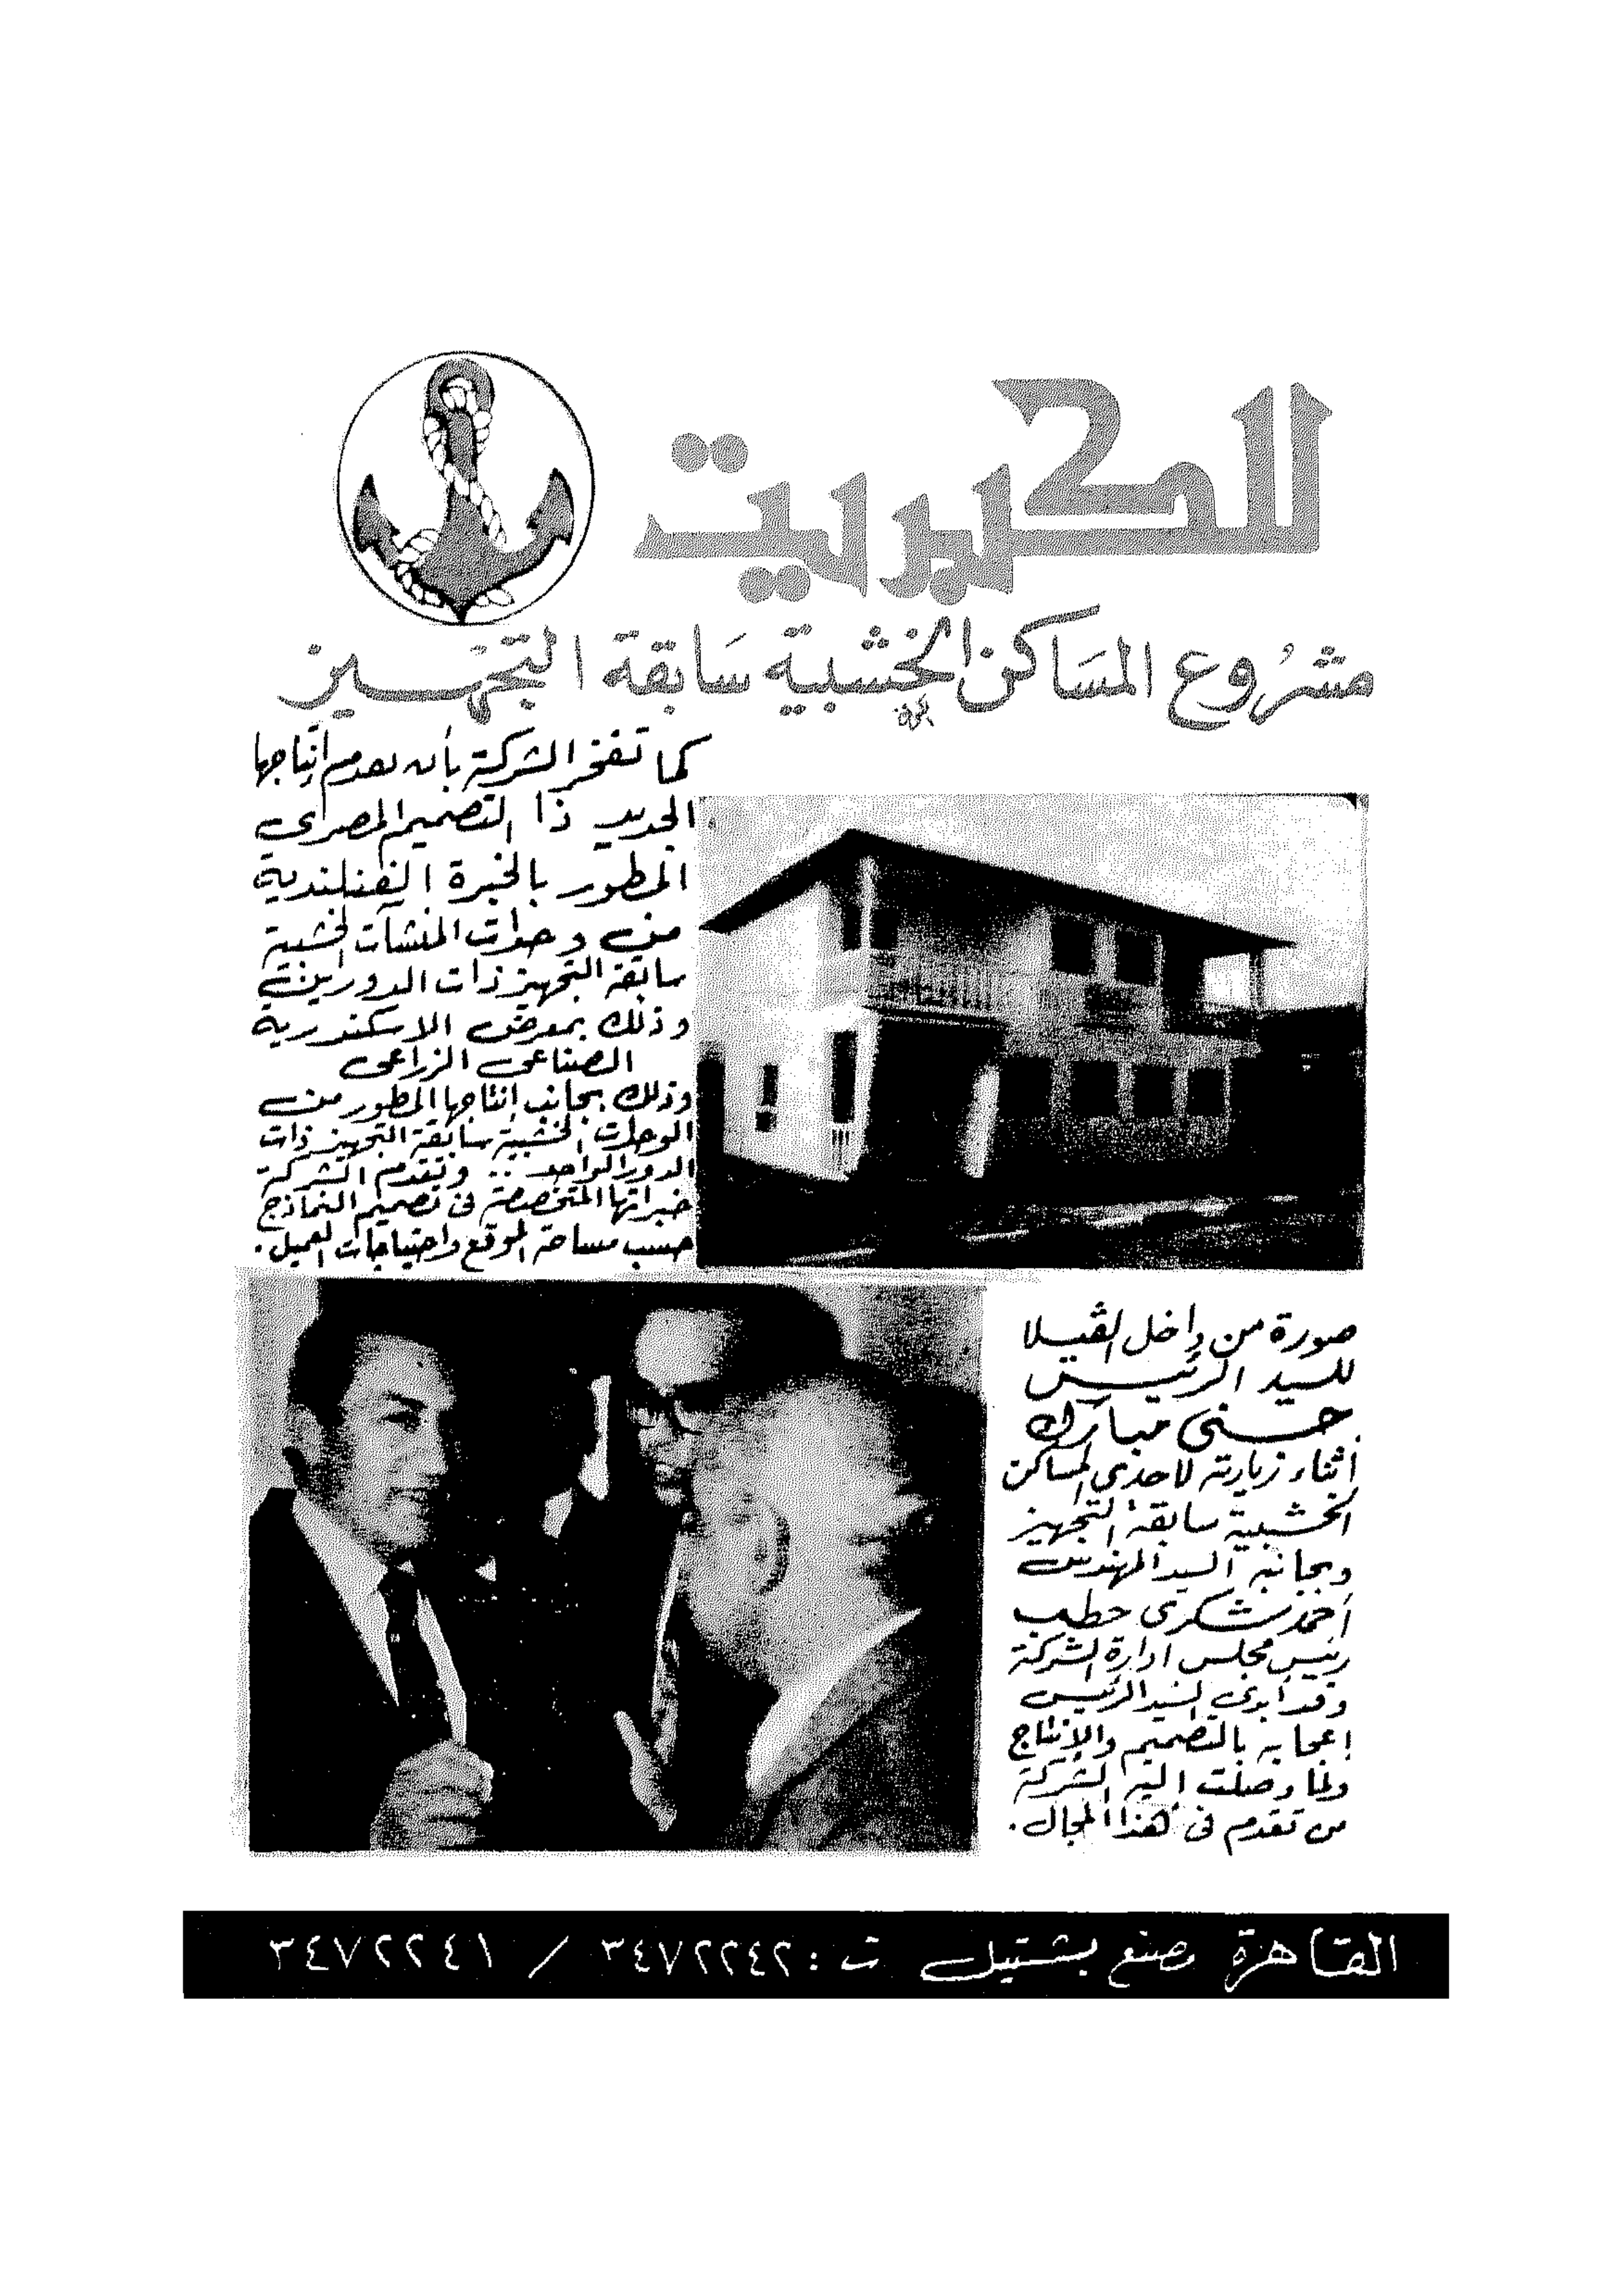 للكبريت
مشروع المساكن الخشبية سابقة التجهيز
كما تفخر الشركة بأن تقدم إنتاجها
الجديد ذا التصميم المصرى
المطور بالخبرة الفنلندية
من وحدات المنشآت الخشبية
سابقة التجهيز ذات الدورين
وذلك بمعرض الاسكندرية
الصناعى الزراعى
وذلك بجانب إنتاجها المطور من
الوحدات الخشبية سابقة التجهيز ذات
الدور الواحد .. وتقدم الشركة
خبراتها المتخصصة فى تصميم النماذج
حسب مساحة الموقع واحتياجات العميل.
صورة من داخل الڤيلا
للسيد الرئيس
حسنى مبارك
أثناء زيارته لاحدى المساكن
الخشبية سابقة التجهيز
وبجانبه السيد المهندس
أحمد شكرى حطب
رئيس مجلس ادارة الشركة
وقد أبدى السيد الرئيس
إعجابه بالتصميم والإنتاج
ولما وصلت اليه الشركة
من تقدم فى هذا المجال.
القاهرة مصنع بشتيل ت : ٣٤٧٢٢٤٢ / ٣٤٧٢٢٤١